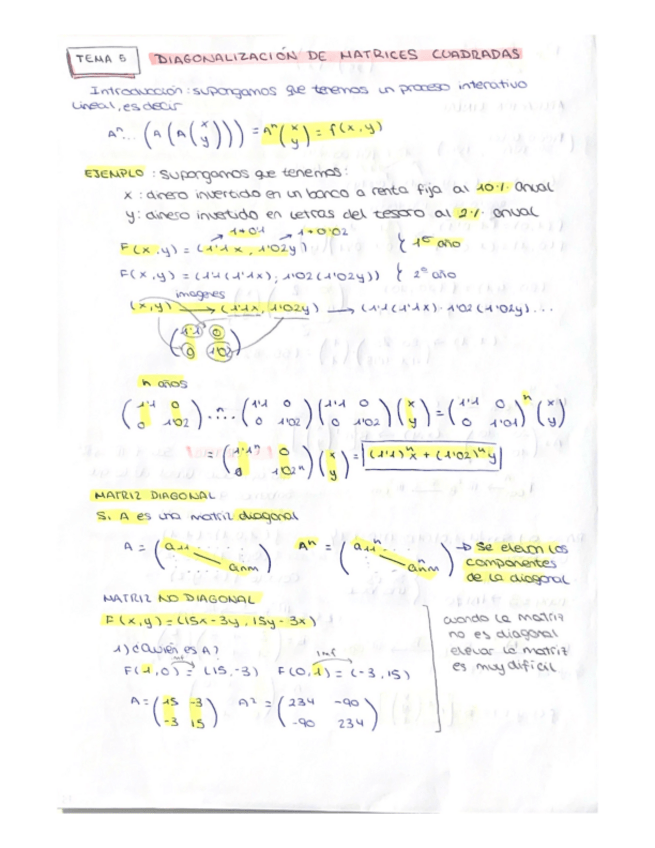 TEMA 5 DIAGONALIZACIÓN DE MATRICES CUADRADAS
Introducción: supongamos que tenemos un proceso interativo
lineal, es decir
Aⁿ... (A(A(x y))) = Aⁿ(x y) = f(x,y)
EJEMPLO: Supongamos que tenemos:
x: dinero invertido en un banco a renta fija al 10% anual
y: dinero invertido en letras del tesoro al 2% anual
1+0'1 1+0'02
F(x,y) = (1'1x, 1'02y) { 1er año
F(x,y) = (1'1(1'1x); 1'02(1'02y)) { 2º año
imagenes
(x,y) → (1'1x, 1'02y) → (1'1(1'1x)· 1'02(1'02y)...
(1'1 0
0 1'02)
n años
(1'1 0 / 0 1'02) ·ⁿ... (1'1 0 / 0 1'02) (1'1 0 / 0 1'02) (x / y) = (1'1 0 / 0 1'01)ⁿ (x / y)
= (1'1ⁿ 0 / 0 1'02ⁿ) (x / y) = (1'1)ⁿx + (1'02)ⁿy
MATRIZ DIAGONAL
Si A es una matriz diagonal
A = (a₁₁ ... aₙₘ) Aⁿ = (a₁₁ⁿ ... aₙₘⁿ) → Se elevan los
componentes
de la diagonal
MATRIZ NO DIAGONAL
F(x,y) = (15x-3y, 15y-3x)
1) ¿Quién es A?
F(1,0) = (15,-3) F(0,1) = (-3,15)
A = (15 -3 / -3 15) A² = (234 -90 / -90 234)
cuando la matriz
no es diagonal
elevar la matriz
es muy difícil